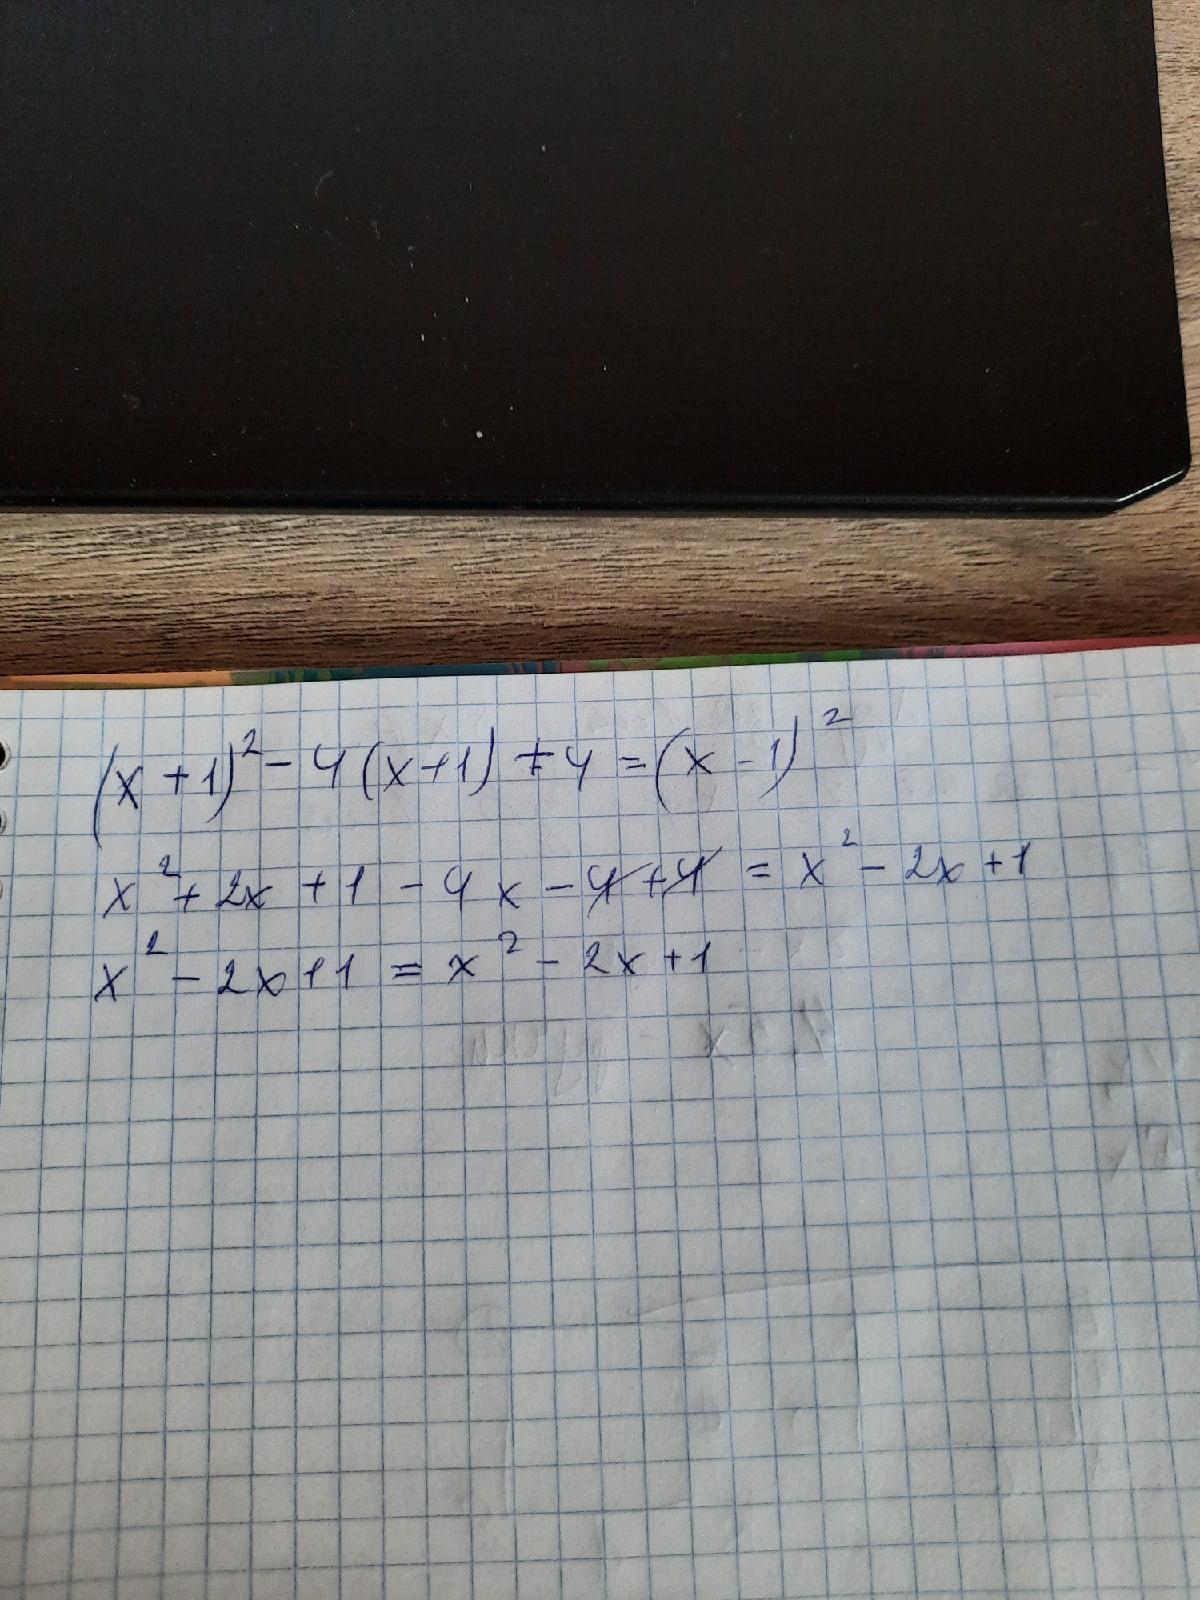 (x + 1)² - 4(x+1) + 4 = (x - 1)²
x² + 2x + 1 - 4x - 4 + 4 = x² - 2x + 1
x² - 2x + 1 = x² - 2x + 1